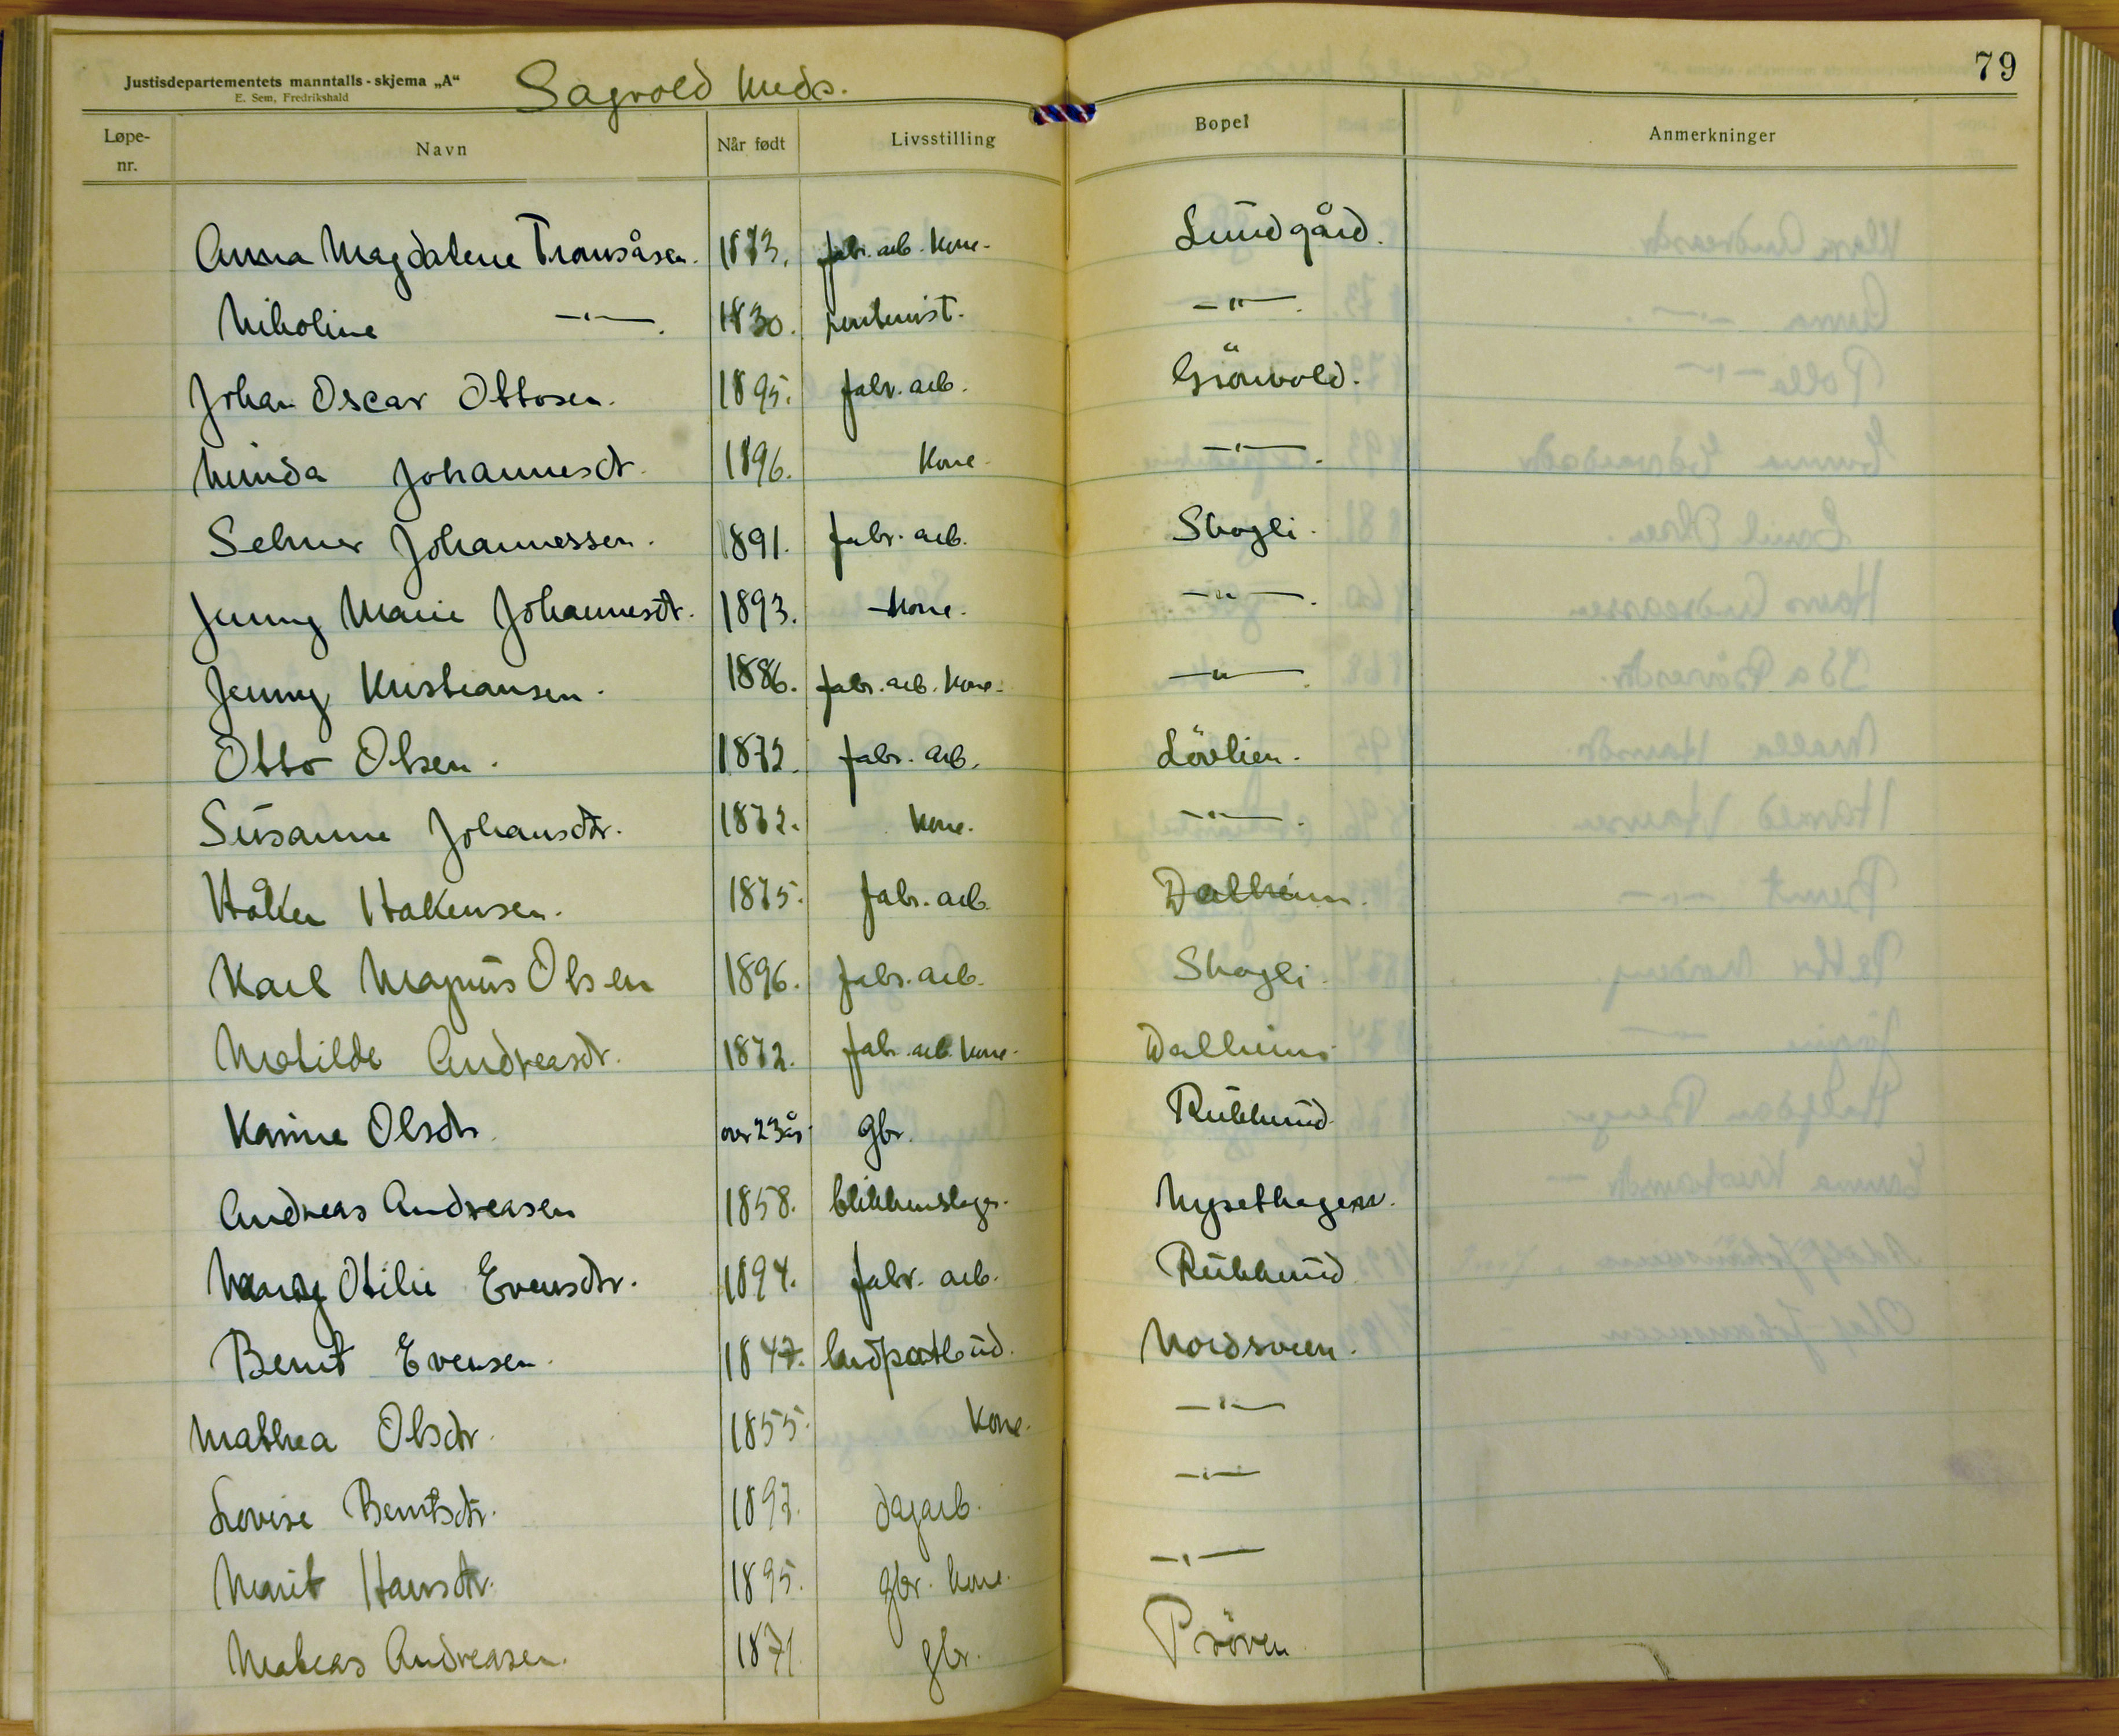 79
Justisdepartementets manntalls-skjema „A“ Sagvold
E. Sem, Fredrikshald
Løpe-nr. Navn Når født Livsstilling Bopel Anmerkninger
Anna Magdalene Tronsåsen. 1873. fabr. arb. kone. Lundgård.
Nikoline —"—. 1830. rentenist. —"—.
Johan Oscar Ottosen. 1895. fabr. arb. Grönvold.
Minda Johannesdt. 1896. kone. —"—.
Selmer Johannessen. 1891. fabr. arb. Skogli.
Jenny Marie Johannesdt. 1893. kone. —"—.
Jenny Kristiansen. 1886. fabr. arb. kone. —"—.
Otto Olsen. 1872. fabr. arb. Lövlien.
Susanne Johansdtr. 1872. kone. —"—.
Håken Hakensen. 1875. fabr. arb. Dalheim.
Karl Magnus Olsen 1896. fabr. arb. Skogli.
Matilde Andreasdt. 1872. fabr. arb. kone. Dalheim
Karine Olsdtr. over 23 år gbr. Rukkund
Andreas Andreasen 1858. blikkenslager. Nysethagen.
Otilie Evensdtr. 1894. fabr. arb. Rukkund
Bernt Evensen. 1847. landpostbud. Nordsveen.
Mathea Olsdtr. 1855. kone. —"—
Lovise Berntsdtr. 1897. dagarb. —"—
Marit Hansdtr. 1895. gbr. kone. —"—
Mateas Andreasen. 1871. gbr. Pröven.